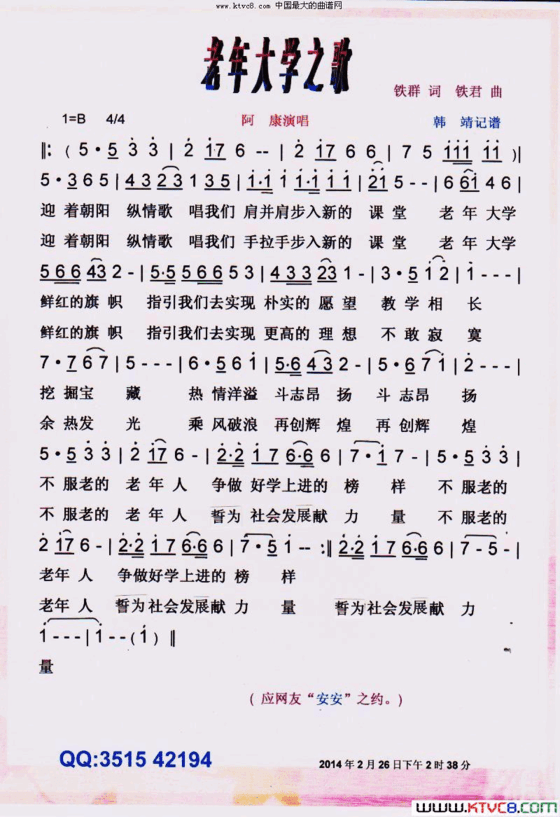 www.ktvc8.com 中国最大的曲谱网
老年大学之歌
铁群 词 铁君 曲
1=B 4/4 阿 康演唱 韩 靖记谱
‖: ( 5·5 3 3 | 2 17 6 -- | 2 17 6 6 | 7 5 111 11 )|
5·3 6 5 | 4 3 2 3 1 3 5 | 1·1 1 1·1 1 1 | 2 1 5 -- | 6 6 1 4 6 |
迎 着朝阳 纵情歌 唱我们 肩并肩步入新的 课 堂 老 年 大学
迎 着朝阳 纵情歌 唱我们 手拉手步入新的 课 堂 老 年 大学
5 6 6 4 3 2 - | 5·5 5 6 6 5 3 | 4 3 3 2 3 1 - | 3·5 1 2 | 1 --- |
鲜红的旗 帜 指引我们去实现 朴实的 愿 望 教 学 相 长
鲜红的旗 帜 指引我们去实现 更高的 理 想 不 敢 寂 寞
7·7 6 7 | 5 --- | 6·5 6 1 | 5·6 4 3 2 - | 5·6 7 1 | 2 --- |
挖 掘宝 藏 热 情洋溢 斗志昂 扬 斗 志昂 扬
余 热发 光 乘 风破浪 再创辉 煌 再 创辉 煌
5·5 3 3 | 2 17 6 - | 2·2 1 7 6·6 6 | 7·1 7 - | 5·5 3 3 |
不 服老的 老 年 人 争做 好学上进的 榜 样 不 服老的
不 服老的 老 年 人 誓为 社会发展献 力 量 不 服老的
2 17 6 - | 2·2 1 7 6·6 6 | 7·5 1 -- :‖ 2·2 1 7 6·6 6 | 7 - 5 - |
老年 人 争做好学上进的 榜 样
老年 人 誓为社会发展献 力 量 誓为社会发展献 力
1 --- | 1 -- (1) ‖
量
( 应网友“安安”之约。)
QQ:3515 42194
2014 年 2 月 26 日下午 2 时 38 分
www.KTVC8.com